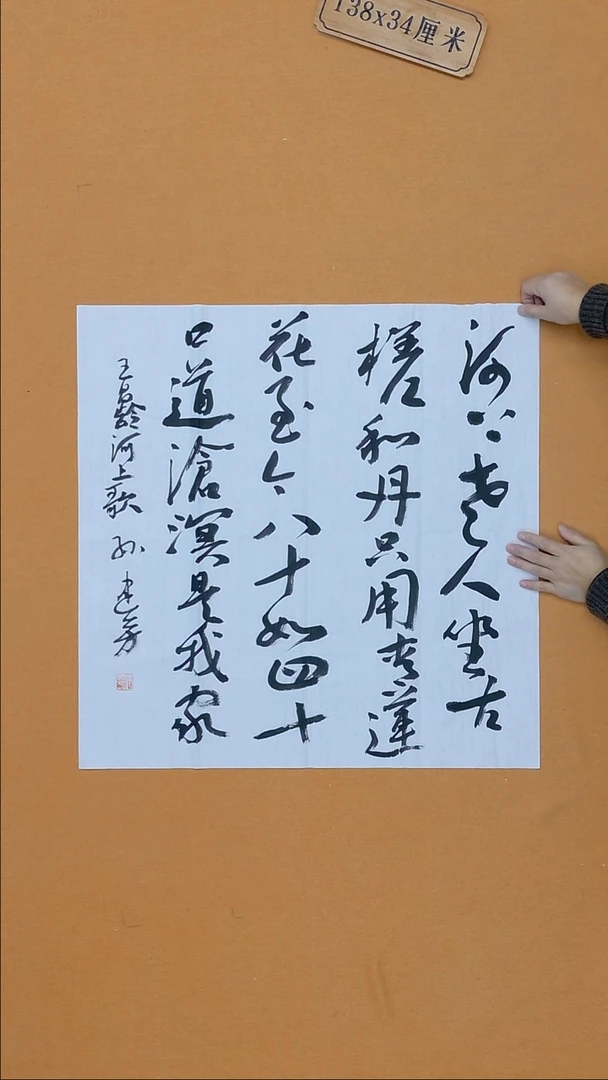 138x34厘米
河上老人坐古
槎和丹只用青蓮
花至今八十如四十
口道滄溟是我家
王昌齡河上歌 孙建芳